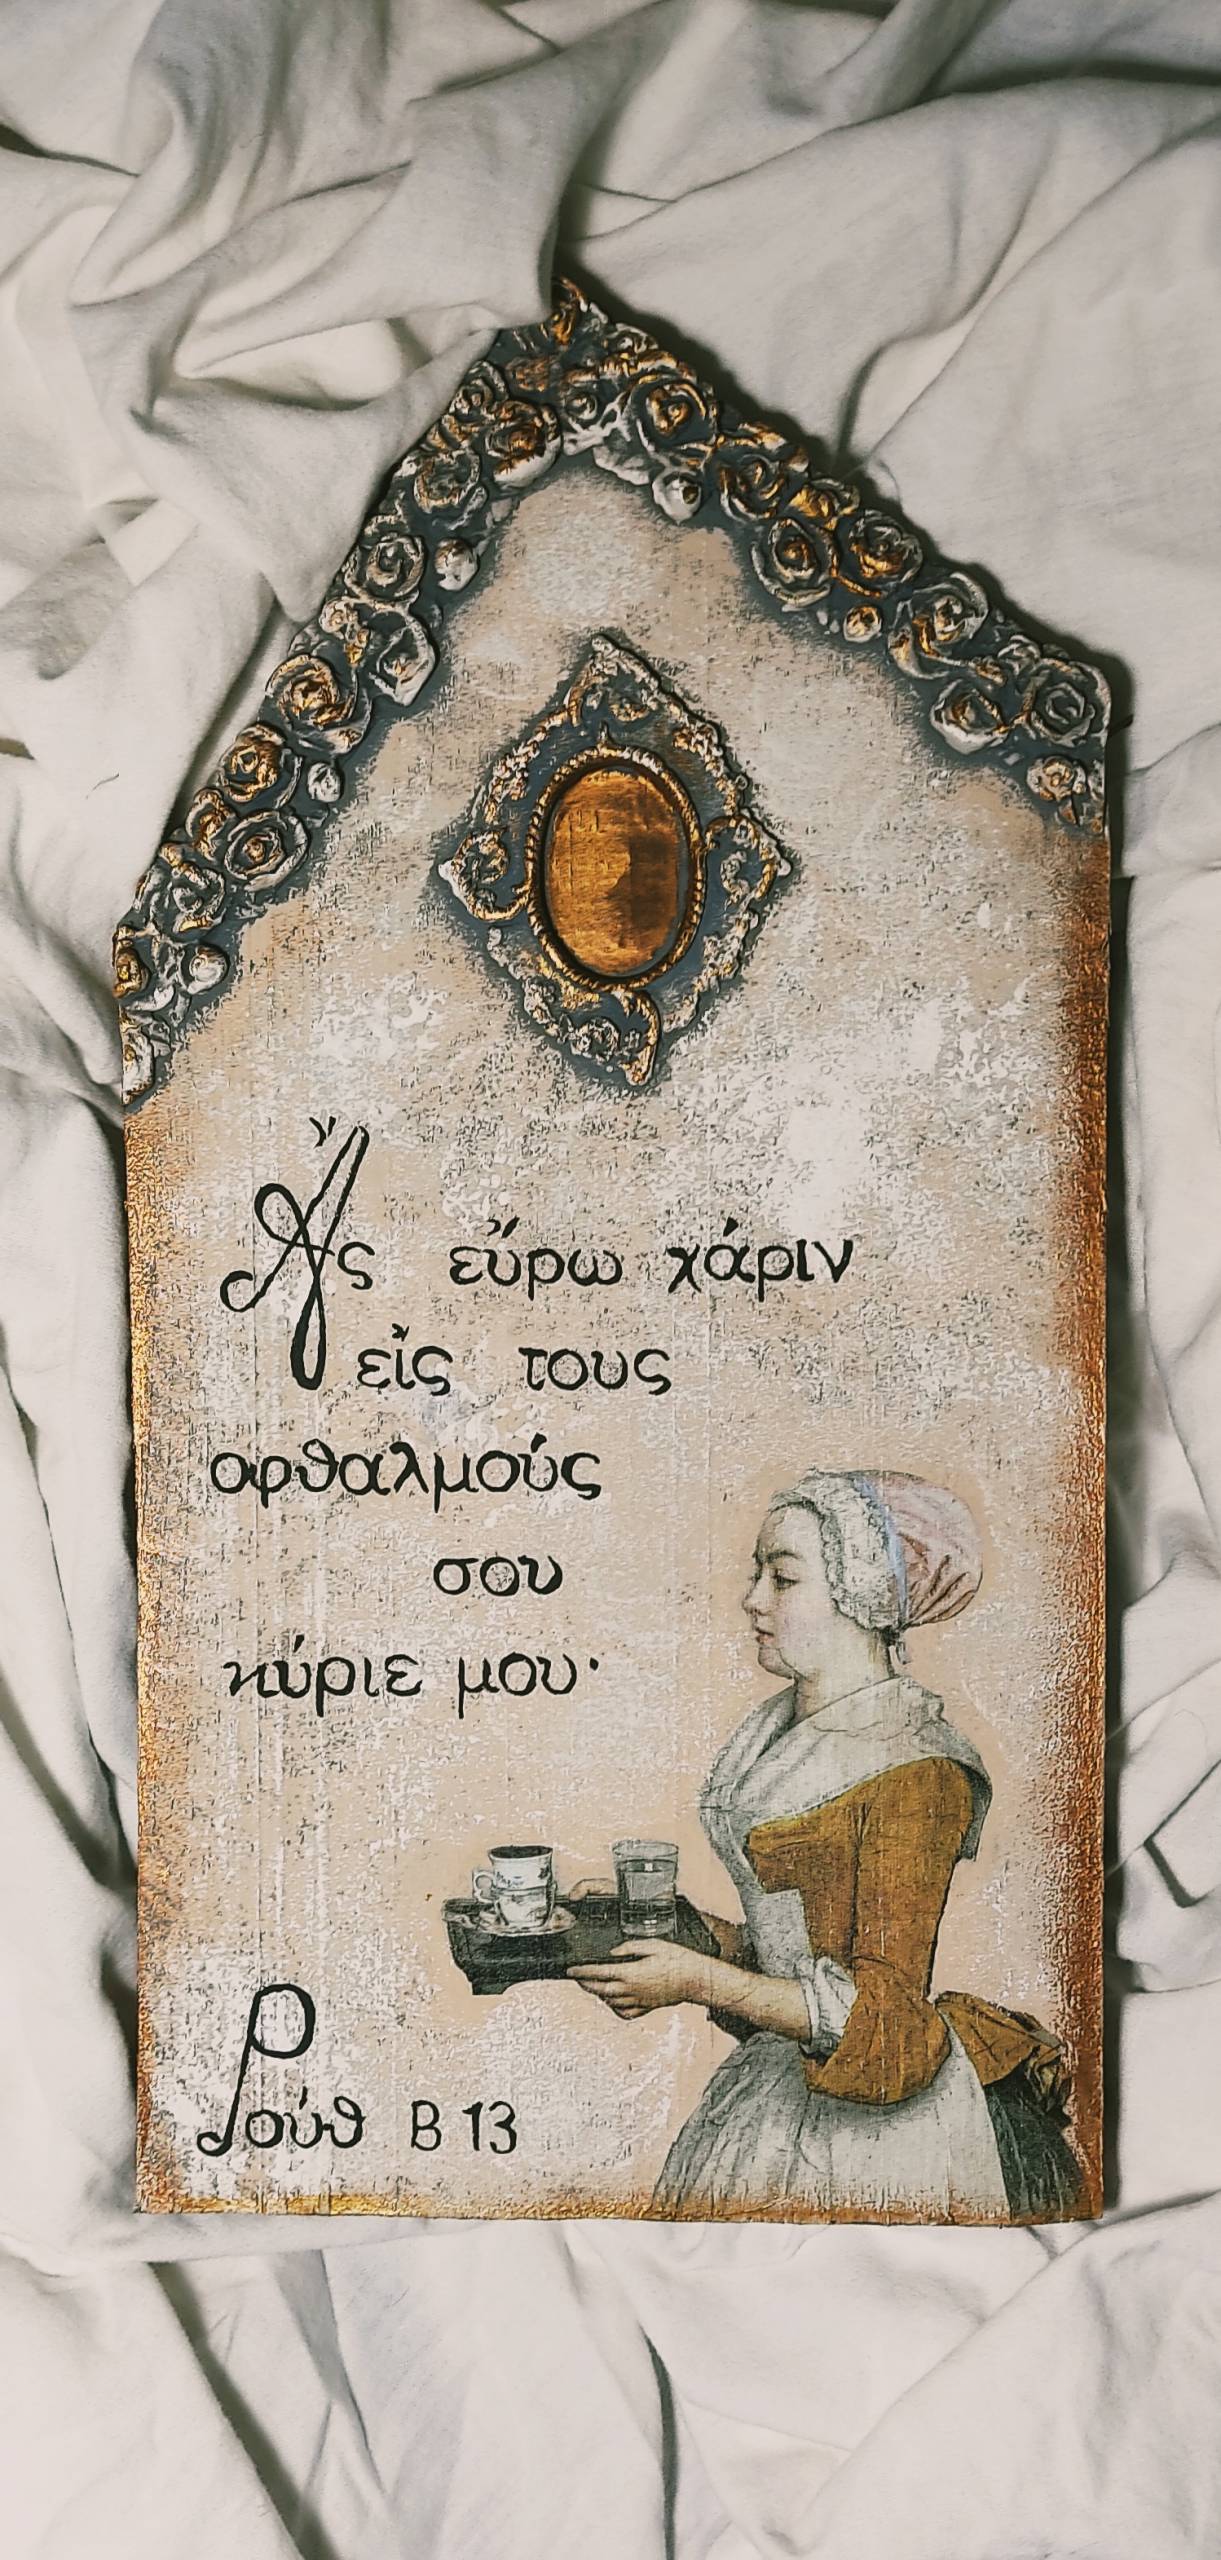 Ἂς εὕρω χάριν
εἲς τους
οφθαλμούς
σου
κύριε μου·
Ρούθ Β 13